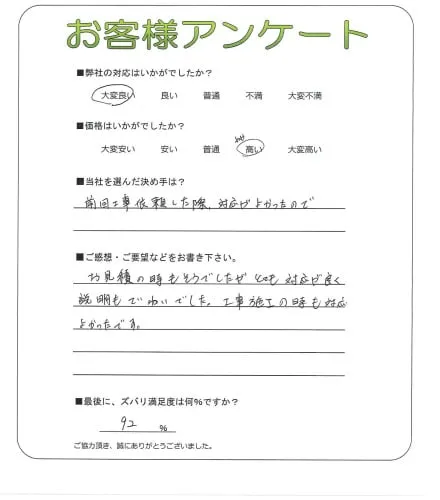 お客様アンケート
■弊社の対応はいかがでしたか？
大変良い 良い 普通 不満 大変不満
■価格はいかがでしたか？
大変安い 安い 普通 高い 大変高い
■当社を選んだ決め手は？
前回工事依頼した際、対応がよかったので
■ご感想・ご要望などをお書き下さい。
お見積の時もそうでしたが とても 対応が良く
説明もていねいでした。工事施工の時も対応
よかったです。
■最後に、ズバリ満足度は何%ですか？
92 %
ご協力頂き、誠にありがとうございました。